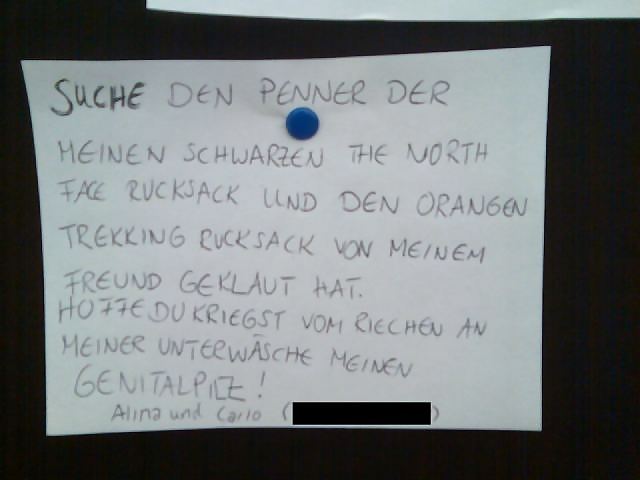 SUCHE DEN PENNER DER
MEINEN SCHWARZEN THE NORTH
FACE RUCKSACK UND DEN ORANGEN
TREKKING RUCKSACK VON MEINEM
FREUND GEKLAUT HAT.
HOFFE DU KRIEGST VOM RIECHEN AN
MEINER UNTERWÄSCHE MEINEN
GENITALPILZ!
Alina und Carlo ( )